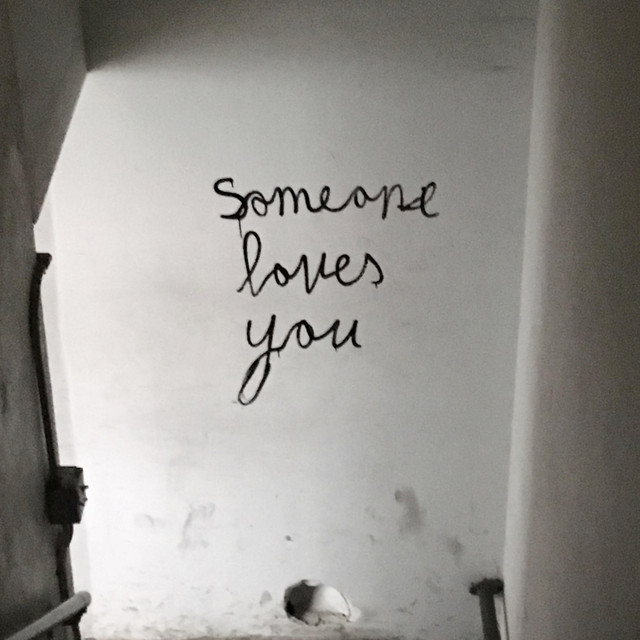 someone
loves
you